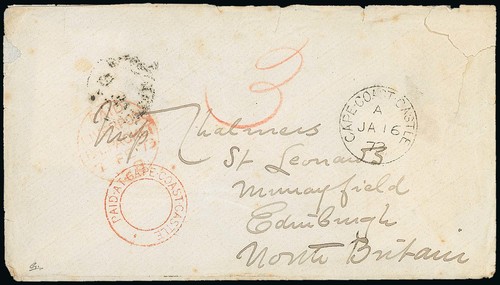 3
CAPE-COAST CASTLE
A
JA 16
73
Miss Chalmers
St Leonards
Murrayfield
Edinburgh
North Britain
PAID-AT-CAPE-COAST-CASTLE